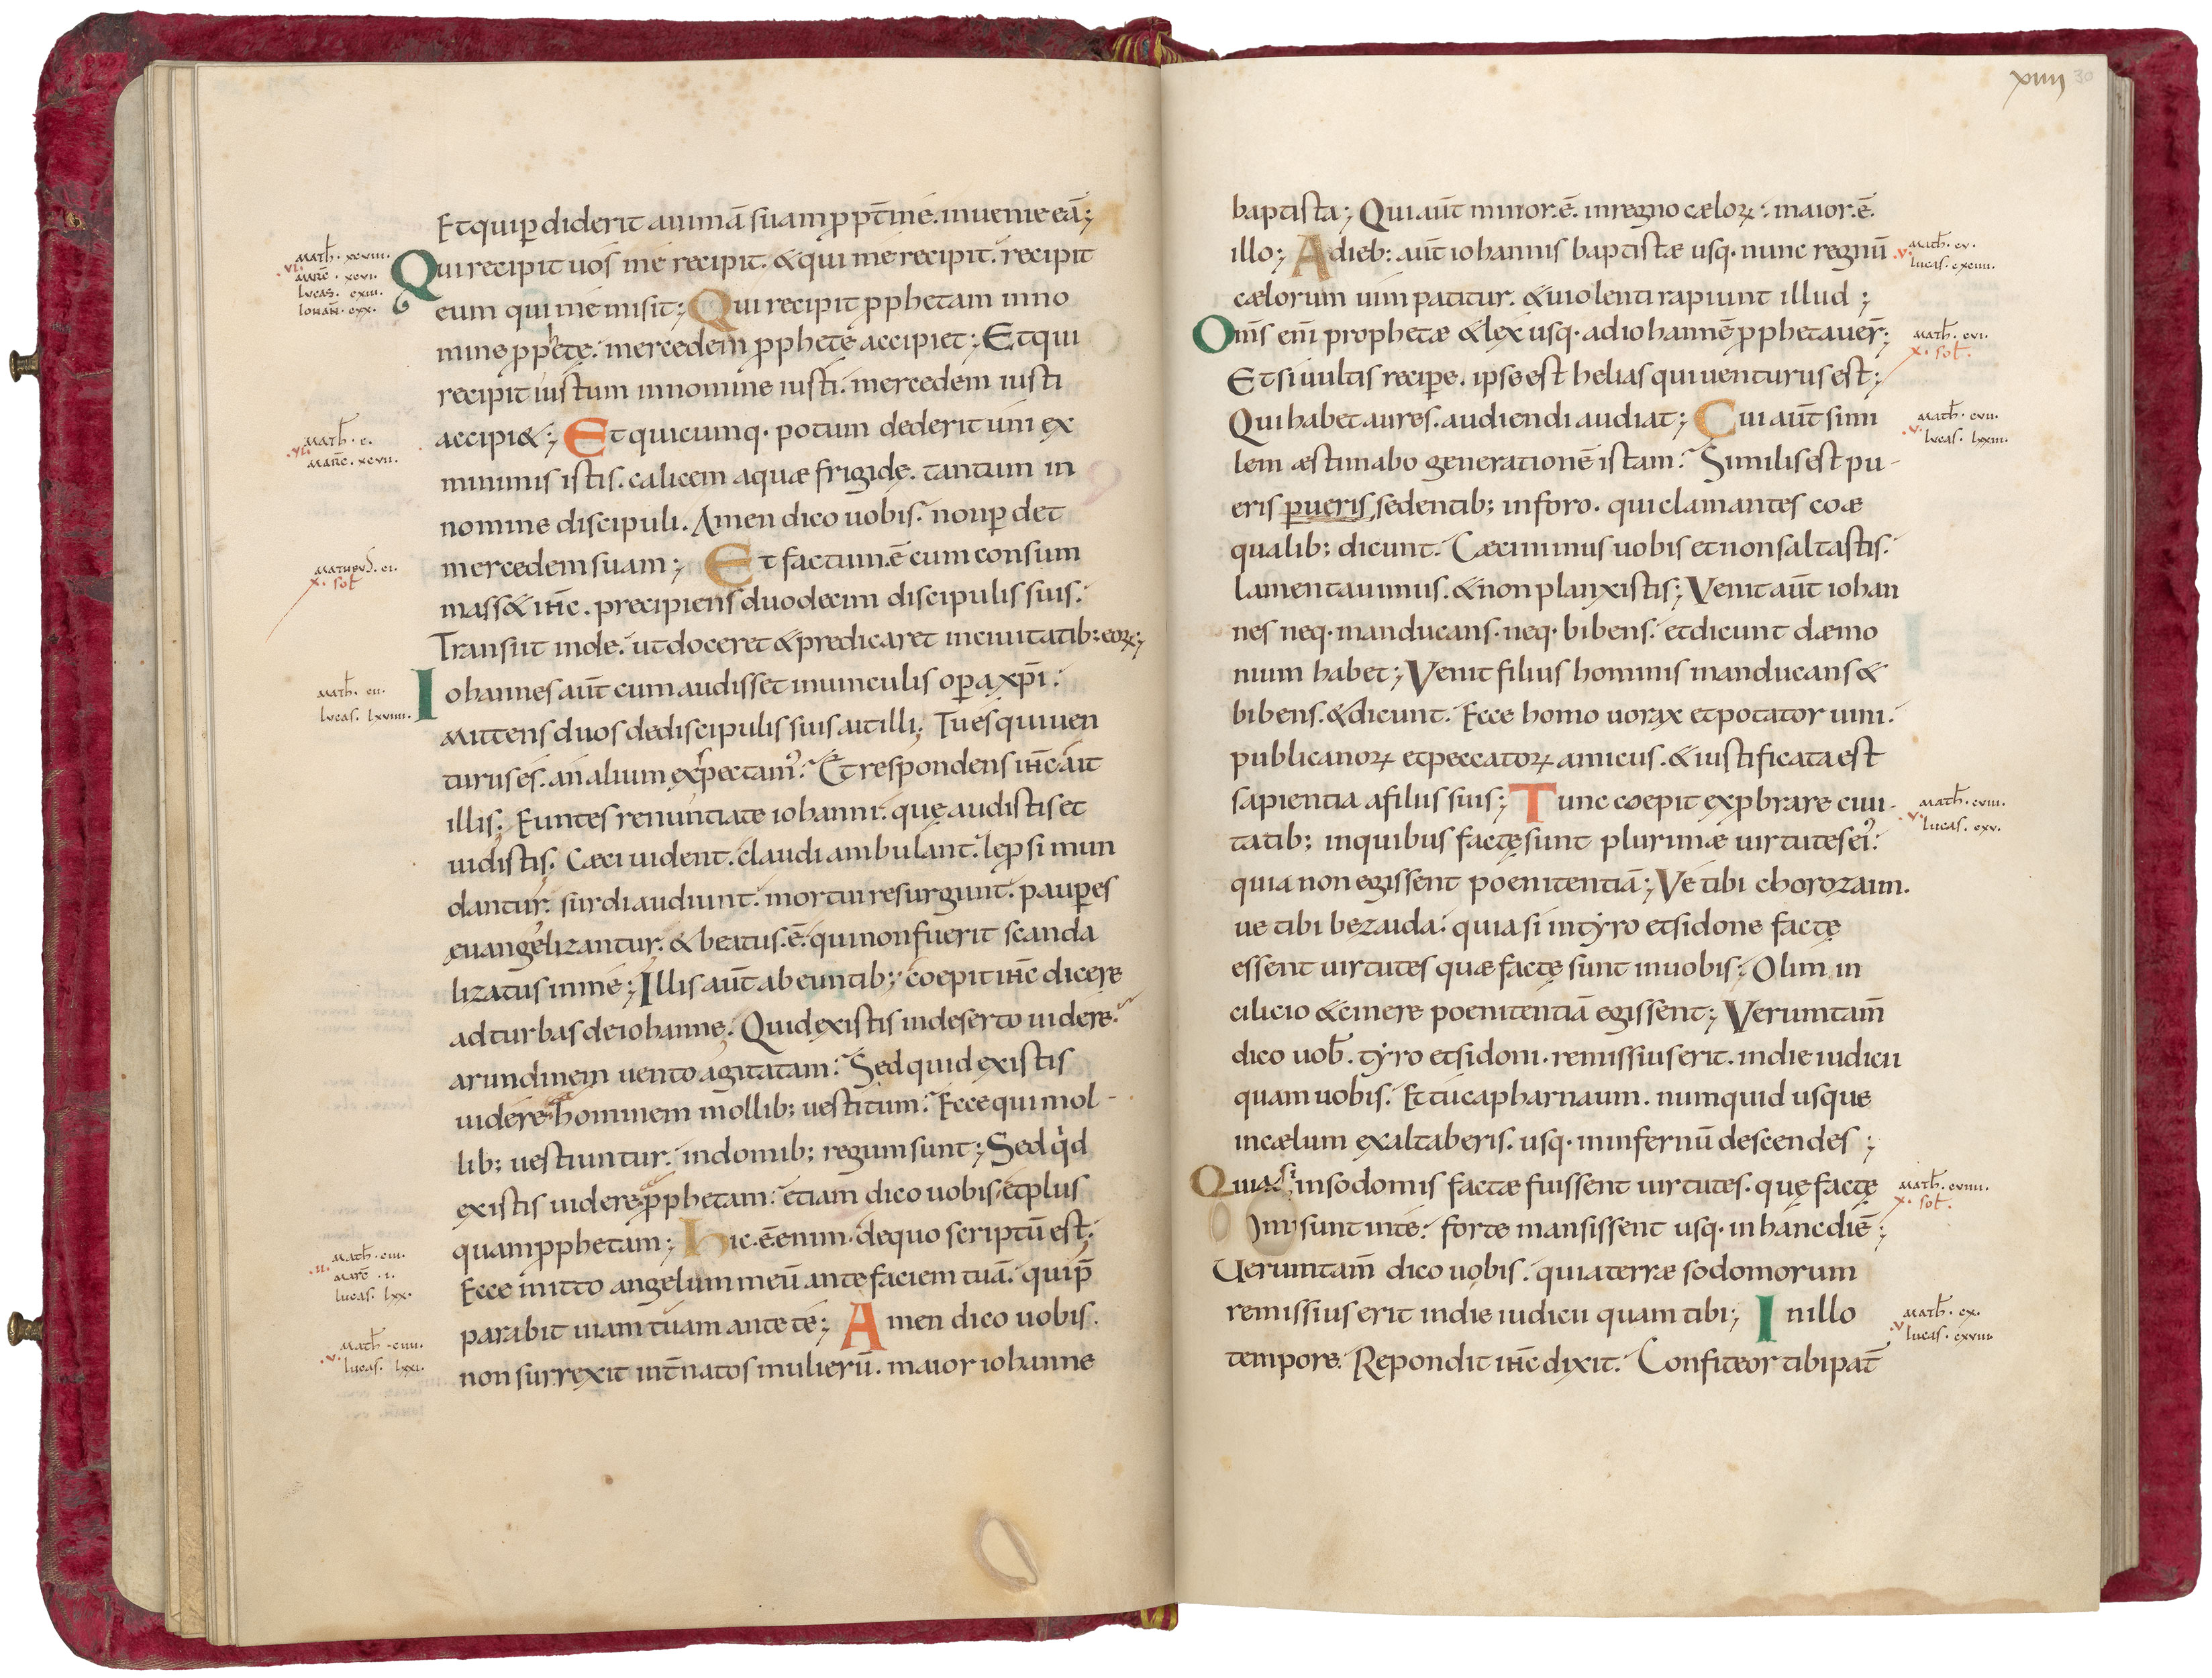 Et qui p̲diderit animā suam pp̄t me. inuenie eā;
Math̄. xcviii.
.vi. marc̄. xcvi.
lucas. cxiii.
iohan̄. cxx.
Qui recipit uos me recipit. & qui me recipit. recipit
eum qui me misit; Qui recipit pphetam in no
mine pphetę. mercedem pphetę accipiet; Et qui
recipit iustum in nomine iusti. mercedem iusti
accipi&; Et quicumq· potum dederit uni ex
Math̄. c.
.vi. Marc̄. xcvii.
minimis istis. calicem aquæ frigidę. tantum in
nomine discipuli. Amen dico uobis. non p̲det
mercedem suam; Et factum.ē cum consum
Matheus. ci.
x. sol̄
mass& ih̄c. precipiens duodecim discipulis suis.
Transiit inde. ut doceret & predicaret in ciuitatib; eoꝝ;
Iohannes aūt cum audisset in uinculis op̲a xp̄i.
Math̄. cii.
lucas. lxviiii.
Mittens duos de discipulis suis ait illi; Tu es qui uen
turus es. an alium exspectam᾽. Et respondens ih̄c ait
illis; Euntes renuntiate iohanni. quę audistis et
uidistis. Cæci uident. claudi ambulant. lep̲si mun
dantur. surdi audiunt. mortui resurgunt. paup̲es
euangelizantur. & beatus.ē. qui non fuerit scanda
lizatus in me; Illis aūt abeuntib; coepit ih̄c dicere
ad turbas de iohanne. Quid existis in deserto uidere.
arundinem uento agitatam. Sed quid existis
uidere hominem mollib; uestitum. Ecce qui mol-
lib; uestiuntur. in domib; regum sunt; Sed qd
existis uidere pphetam. etiam dico uobis et plus
quam pphetam; Hic.ē enim. de quo scriptū est.
Math̄. ciii.
.ii. Marc̄. i.
lucas. lxx.
Ecce mitto angelum meū ante faciem tuā. qui p̄
parabit uiam tuam ante te; Amen dico uobis.
Math̄. ciiii.
.v. lucas. lxxi.
non surrexit int̄ natos mulierū. maior iohanne
xiiii 30
baptista; Qui aūt minor.ē. in regno cæloꝝ. maior.ē.
illo; A dieb; aūt iohannis baptistæ usq· nunc regnū
Math̄. cv.
.v. lucas. cxciiii.
cælorum uim patitur. & uiolenti rapiunt illud;
Om̄s eni prophetæ & lex usq· ad iohannē pphetauer̄;
Math̄. cvi.
x. sol̄.
Et si uultis recip̲e. ipse est helias qui uenturus est;
Qui habet aures. audiendi audiat; Cui aūt simi
Math̄. cvii.
.v. lucas. lxxiii.
lem æstimabo generationē istam. Similis est pu-
eris pueris sedentib; in foro. qui clamantes coæ
qualib; dicunt. Cæcinimus uobis et non saltastis.
Lamentauimus. & non planxistis; Venit aūt iohan
nes neq· manducans. neq· bibens. et dicunt dæmo
nium habet; Venit filius hominis manducans &
bibens. & dicunt. Ecce homo uorax et potator uini.
publicanoꝝ et peccatoꝝ amicus. & iustificata est
sapientia a filiis suis; Tunc coepit exp̲brare ciui-
Math̄. cviii.
.v. lucas. cxv.
tatib; in quibus factę sunt plurimæ uirtutes ei᾽.
quia non egissent poenitentiā; Ve tibi chorozaim.
ue tibi bezaida. quia si in tyro et sidone factę
essent uirtutes quæ factę sunt in uobis; Olim in
cilicio & cinere poenitentiā egissent; Verumtam̄
dico uob̄. tyro et sidoni. remissius erit. in die iudicii
quam uobis. Et tu capharnaum. numquid usque
in cælum exaltaberis. usq· in infernū descendes;
Quia si in sodomis factæ fuissent uirtutes. quę factę
Math̄. cviiii.
x. sol̄.
sunt in te. forte mansissent usq· in hanc diē;
Uerumtam̄ dico uobis. quia terræ sodomorum
remissius erit in die iudicii quam tibi; In illo
Math̄. cx.
.v. lucas. cxviii.
tempore. Repondit ih̄c dixit. Confiteor tibi pat̄